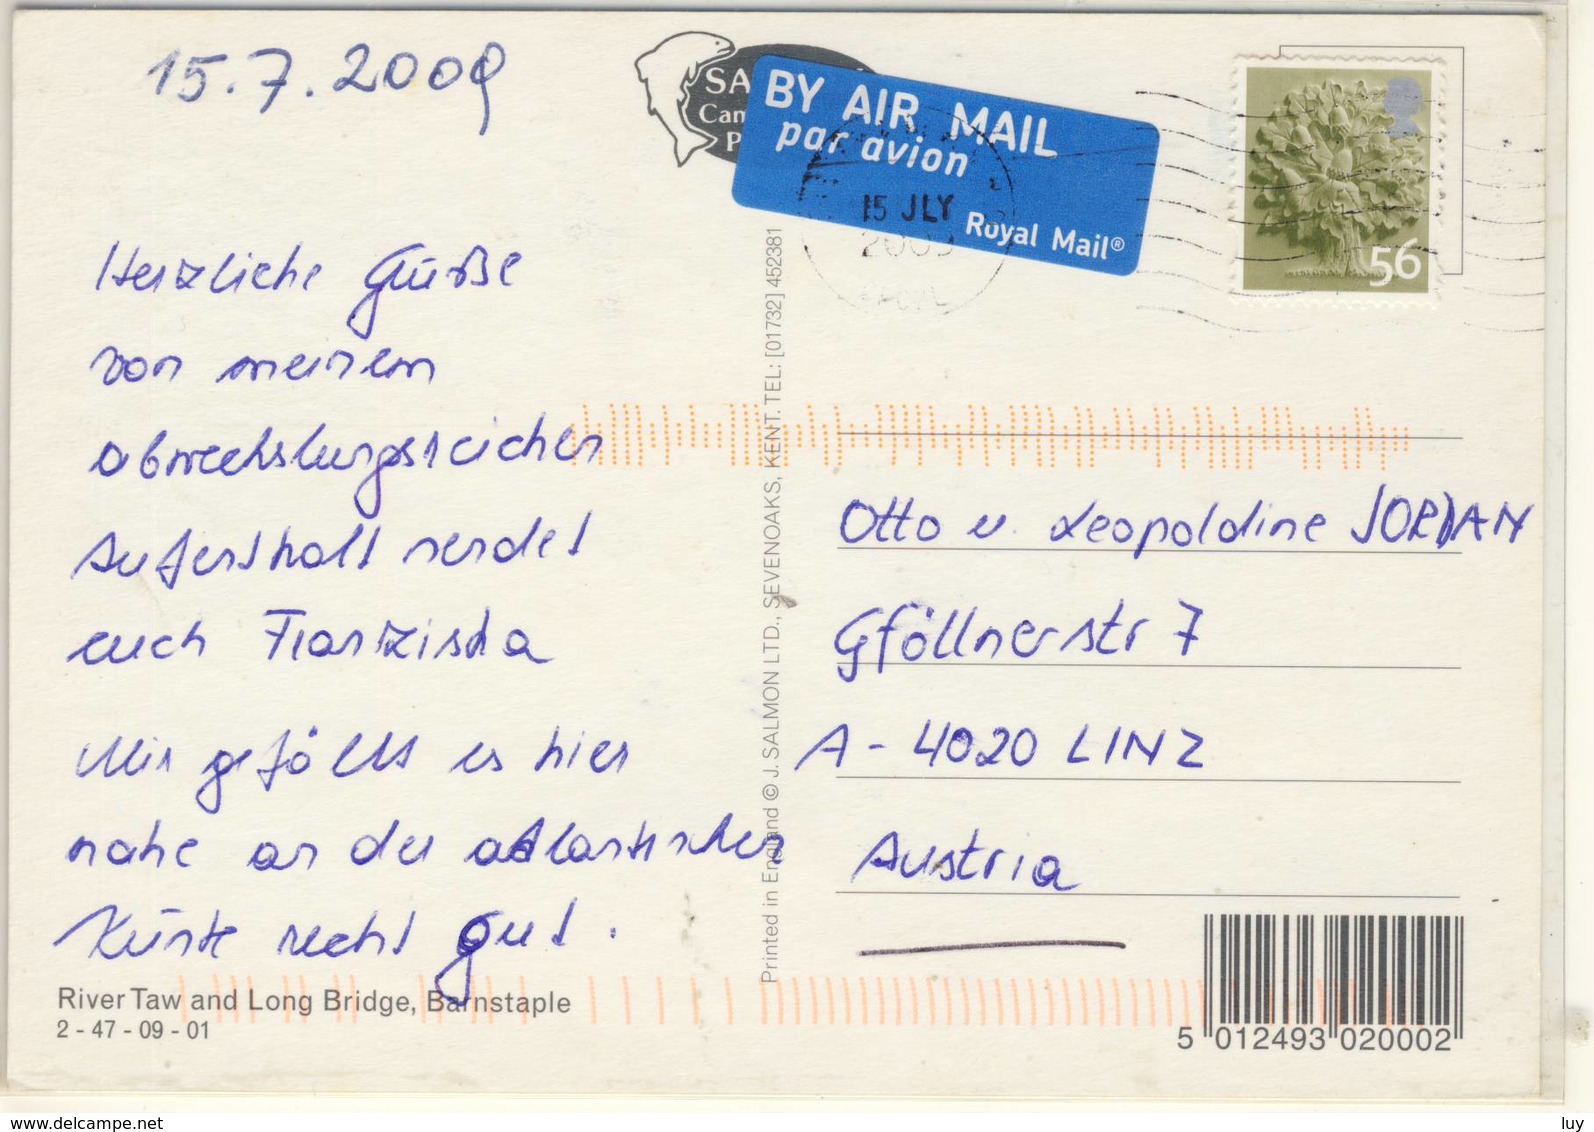 15.7.2009
SA
Cam
P
BY AIR MAIL
par avion
Royal Mail®
15 JLY
2009
56
Herzliche Grüße
von meinem
abwechslungsreichen
Aufenthalt sendet
euch Franziska
Mir gefällt es hier
nahe an der atlantischen
Küste recht gut.
River Taw and Long Bridge, Barnstaple
2 - 47 - 09 - 01
Printed in England © J. SALMON LTD., SEVENOAKS, KENT. TEL: [01732] 452381
Otto u. Leopoldine JORDAN
Gföllnerstr 7
A - 4020 LINZ
Austria
5 012493 020002
www.delcampe.net
luy